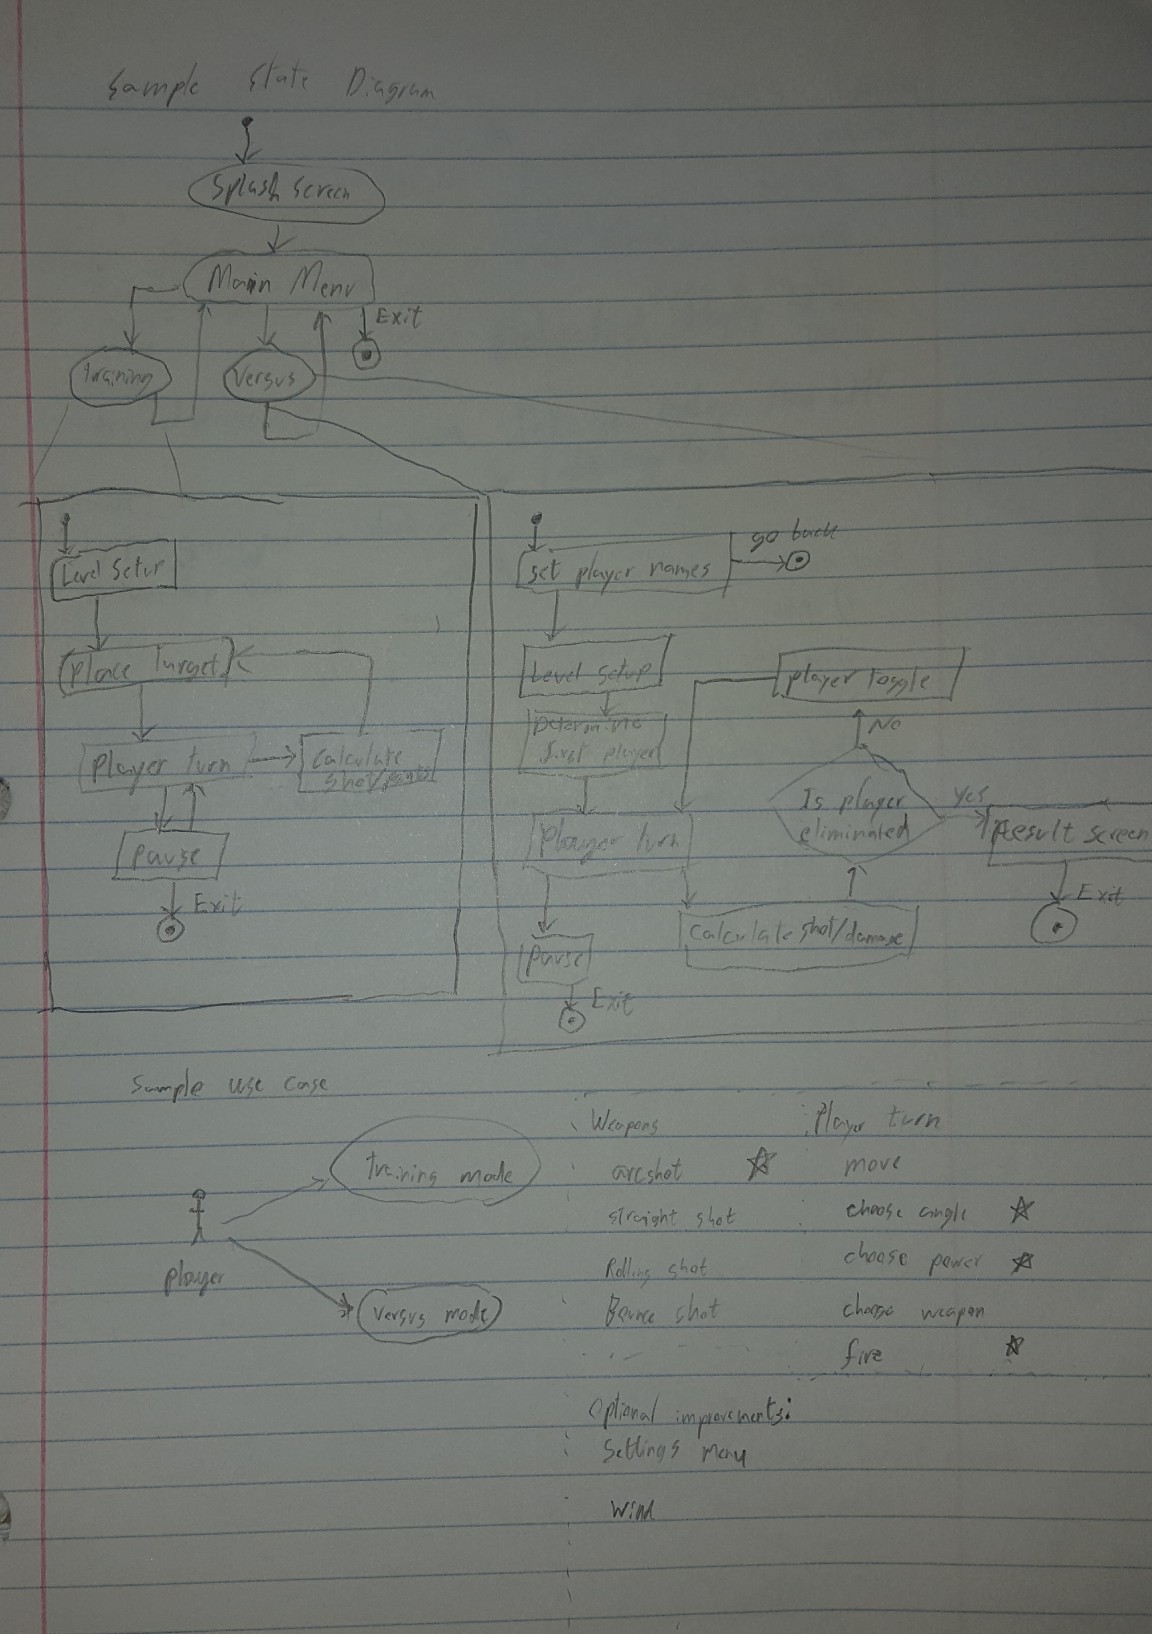 Sample State Diagram
Splash Screen
Main Menu
Exit
training
Versus
Level Setup
Place Target
Player turn
Calculate
shot/
Pause
Exit
set player names
go back
Level Setup
Determine
first player
Player turn
Pause
Exit
Calculate shot/damage
Is player
eliminated
No
player toggle
Yes
Result screen
Exit
Sample use case
player
training mode
Versus mode
Weapons
arcshot
straight shot
Rolling shot
Bounce shot
Player turn
move
choose angle
choose power
choose weapon
fire
Optional improvements:
Settings menu
Wind